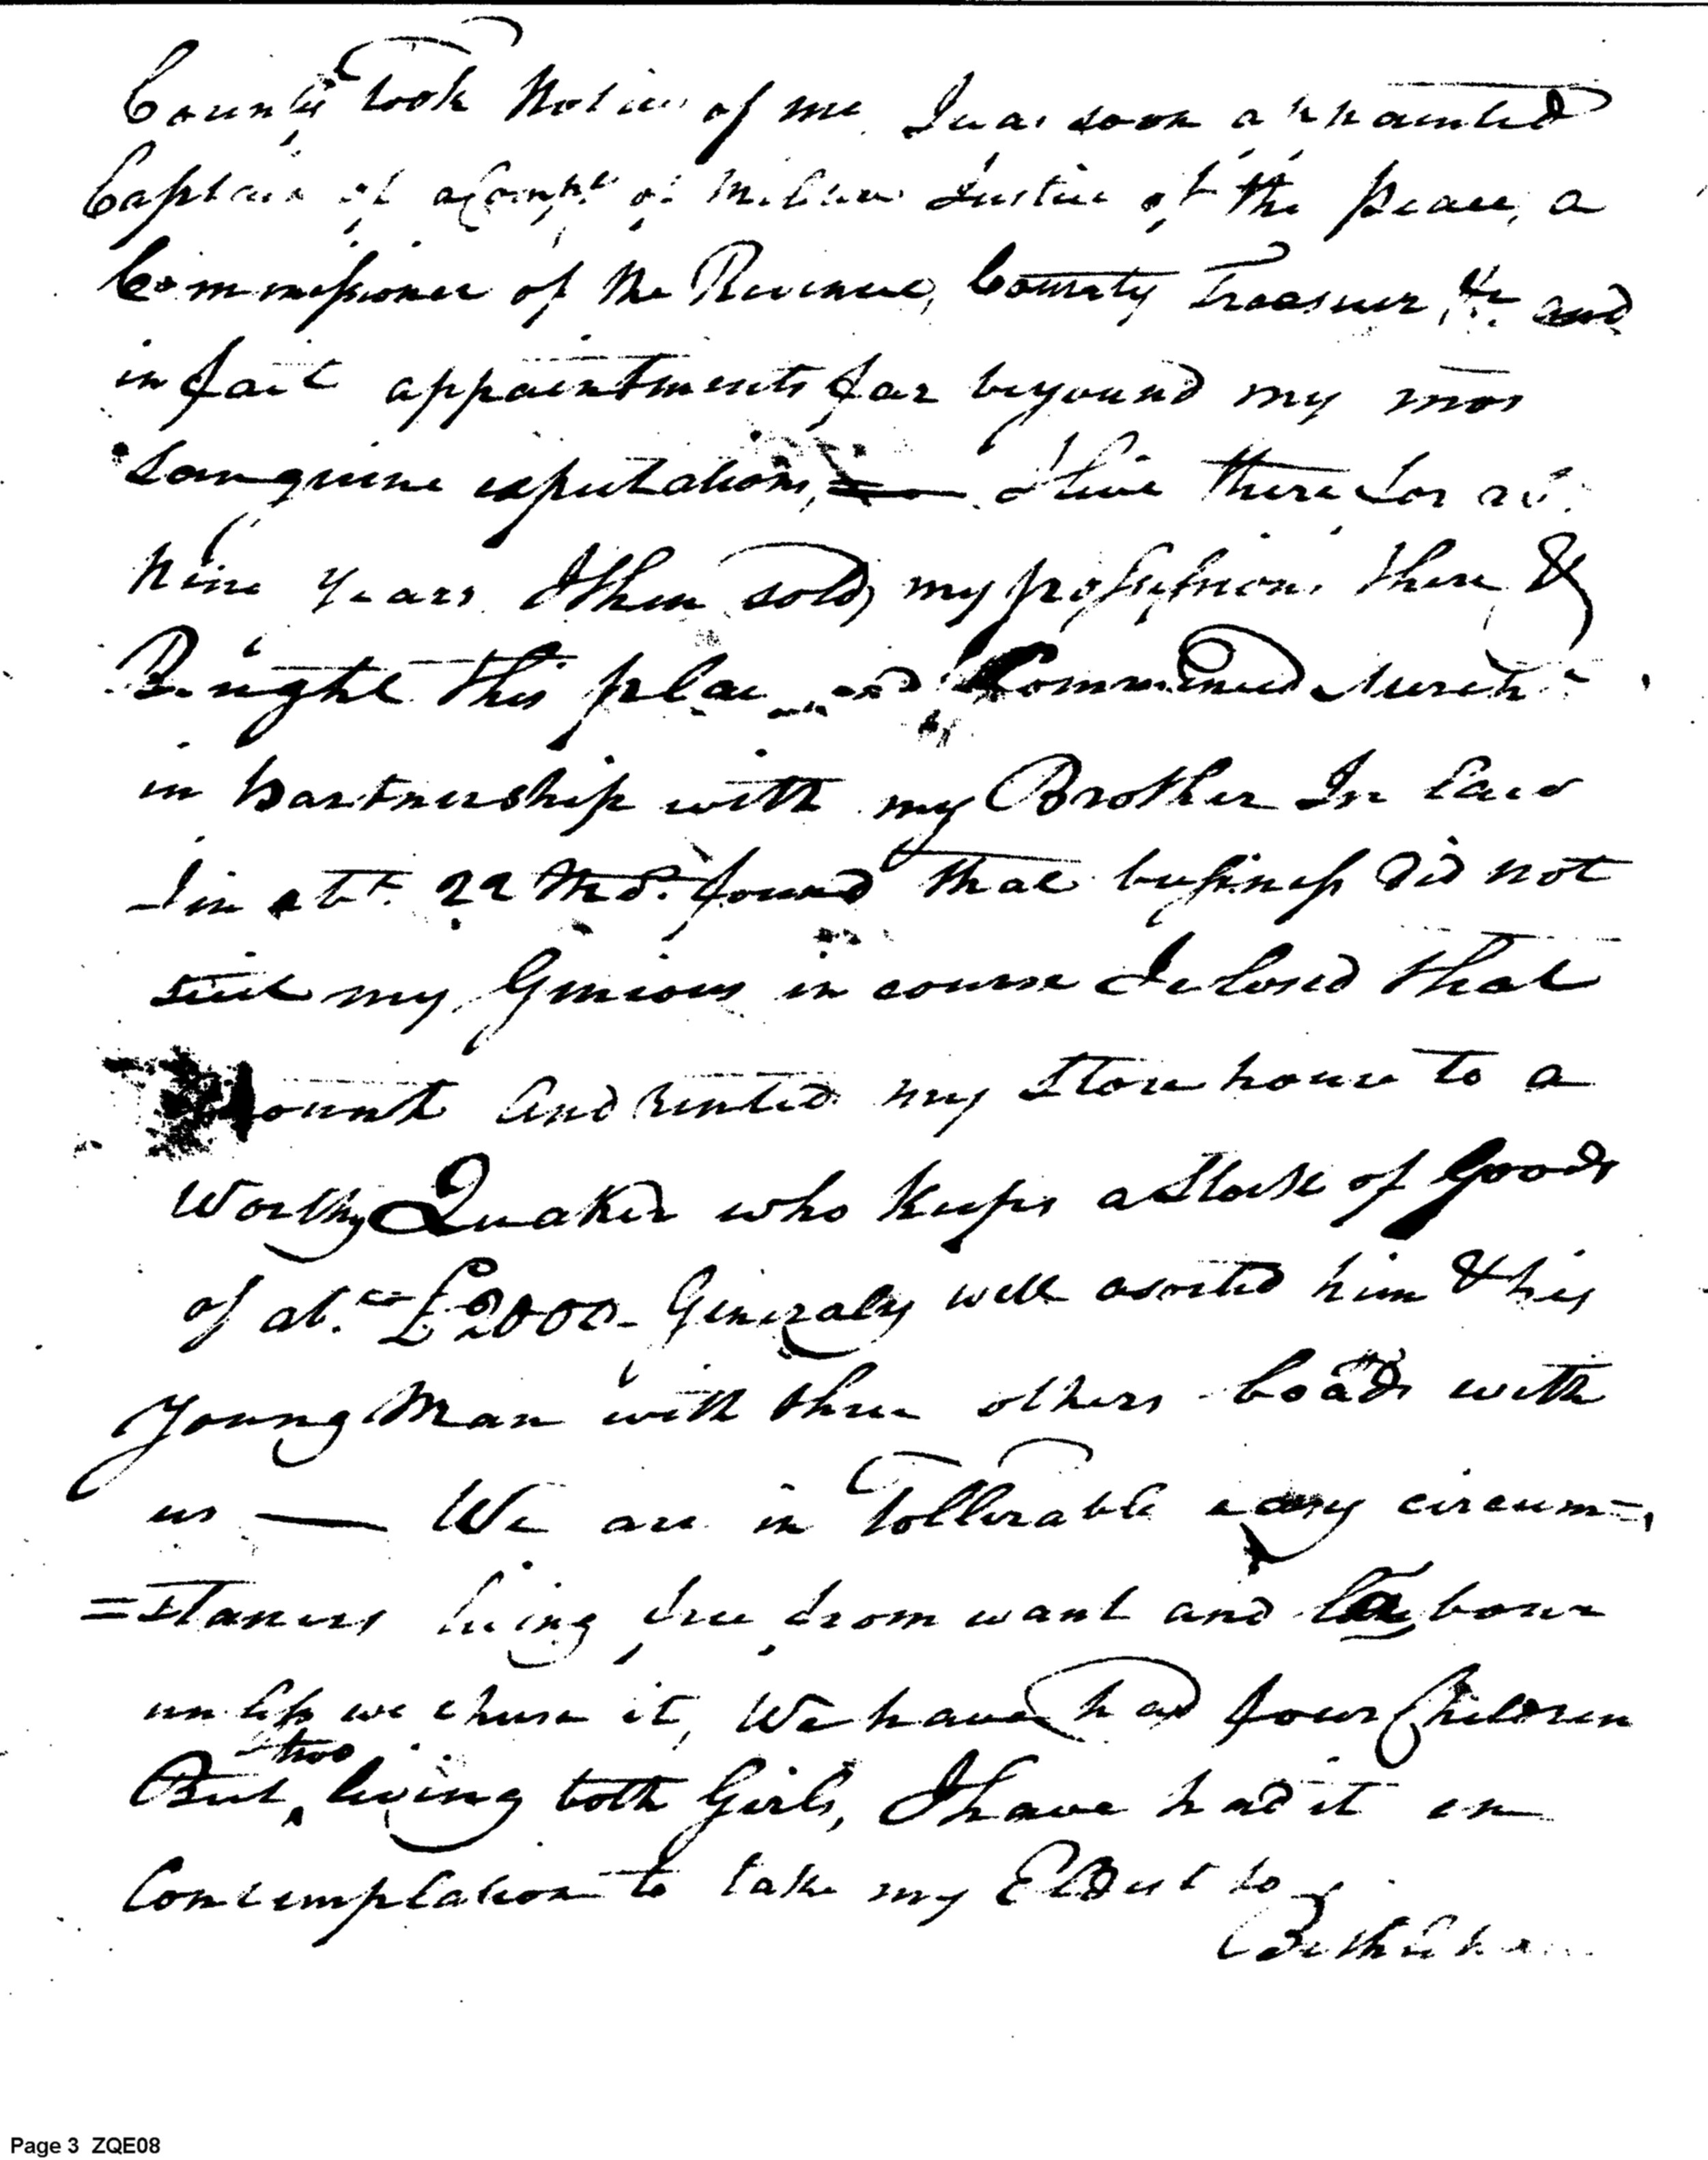 County took Notice of me, I was soon appointed
Captain of a Compy. of Militia Justice of the peace, a
Commissioner of the Revenue, County Treasurer, &c. and
in fact appointments far beyound my mos
sanguine expectations, I live there for
Nine Years I then sold my possessions there &
Bought this place and Commenced Mercht
in partnership with my Brother In Law
I in abt. 22 Mo. found that business did not
suit my Genious in course I closed that
and rented my Store house to a
Worthy Quaker who keeps a Stock of Goods
of abt. £2000 - Generaly well asorted him & his
Young Man with three others boads with
us — We are in Tollerable easy circum=
=stances living free from want and labour
unless we chuse it, We have had four Children
But two living both Girls, I have had it in
Contemplation to take my Eldest to
Bethlehem
Page 3 ZQE08